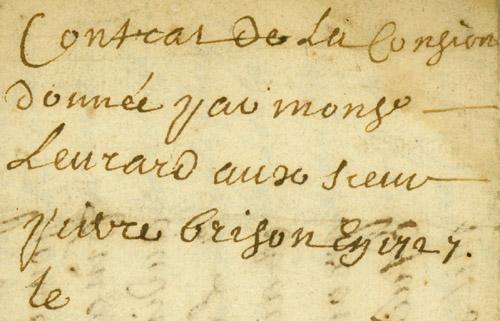 Contrat de La Consion
donnée par mons
Leurard aux sieur
pierre brison En 1727.
le